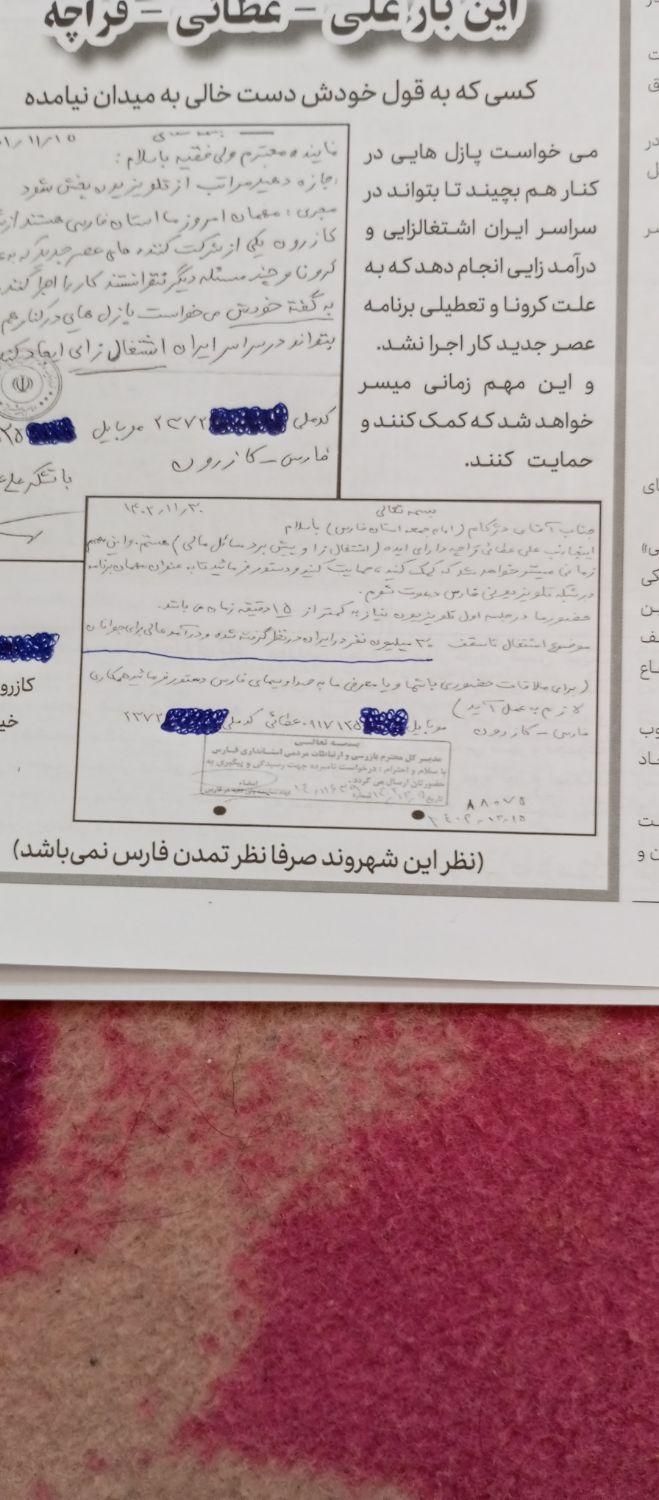 این بار علی - عطائی - قراچه
کسی که به قول خودش دست خالی به میدان نیامده
می خواست پازل هایی در
کنار هم بچیند تا بتواند در
سراسر ایران اشتغالزایی و
درآمد زایی انجام دهد که به
علت کرونا و تعطیلی برنامه
عصر جدید کار اجرا نشد.
و این مهم زمانی میسر
خواهد شد که کمک کنند و
حمایت کنند.
۱۱/۱۵
نماینده محترم ولی فقیه با سلام:
اجازه دهید مراتب از تلویزیون پخش شود
مجری: مهمان امروز ما استان فارس هستند از
کازرون یکی از شرکت کننده های عصر جدید که به
کرونا و چند مسئله دیگر نتوانستند کار را اجرا کنند
به گفته خودش می خواست پازل هایی در کنار هم
بتواند در سراسر ایران اشتغال زایی ایجاد کند
کد ملی ۲۳۷۲ موبایل
فارس - کازرون
با تشکر علی
بسمه تعالی
۱۴۰۲،۱۱،۳۰
جناب آقای دژکام (امام جمعه استان فارس) با سلام
اینجانب علی عطائی قراچه دارای ایده (اشتغال زا و پیش برد مسائل مالی) هستم. و این مهم
زمانی میسر خواهد شد که کمک کنید، حمایت کنید و دستور فرمائید تا به عنوان مهمان برنامه
در شبکه تلویزیونی فارس دعوت شوم.
حضور ما در جلسه اول تلویزیون نیاز به کمتر از ۱۵ دقیقه زمان می باشد.
موضوع اشتغال تا سقف ۳۰ میلیون نفر در ایران در نظر گرفته شده و درآمد عالی برای جوانان
(برای ملاقات حضوری با شما و یا معرفی ما به صدا و سیمای فارس دستور فرمائید همکاری
لازم به عمل آید)
فارس - کازرون موبایل ۰۹۱۷۱۲۵ عطائی کد ملی ۲۳۷۲
بسمه تعالی
مدیر کل محترم بازرسی و ارتباطات مردمی استانداری فارس
با سلام و احترام: درخواست نامبرده جهت رسیدگی و پیگیری به
حضورتان ارسال می گردد.
۸۸۰۷۵
۱۴۰۲،۱۲،۱۵
کازرو
(نظر این شهروند صرفا نظر تمدن فارس نمی‌باشد)